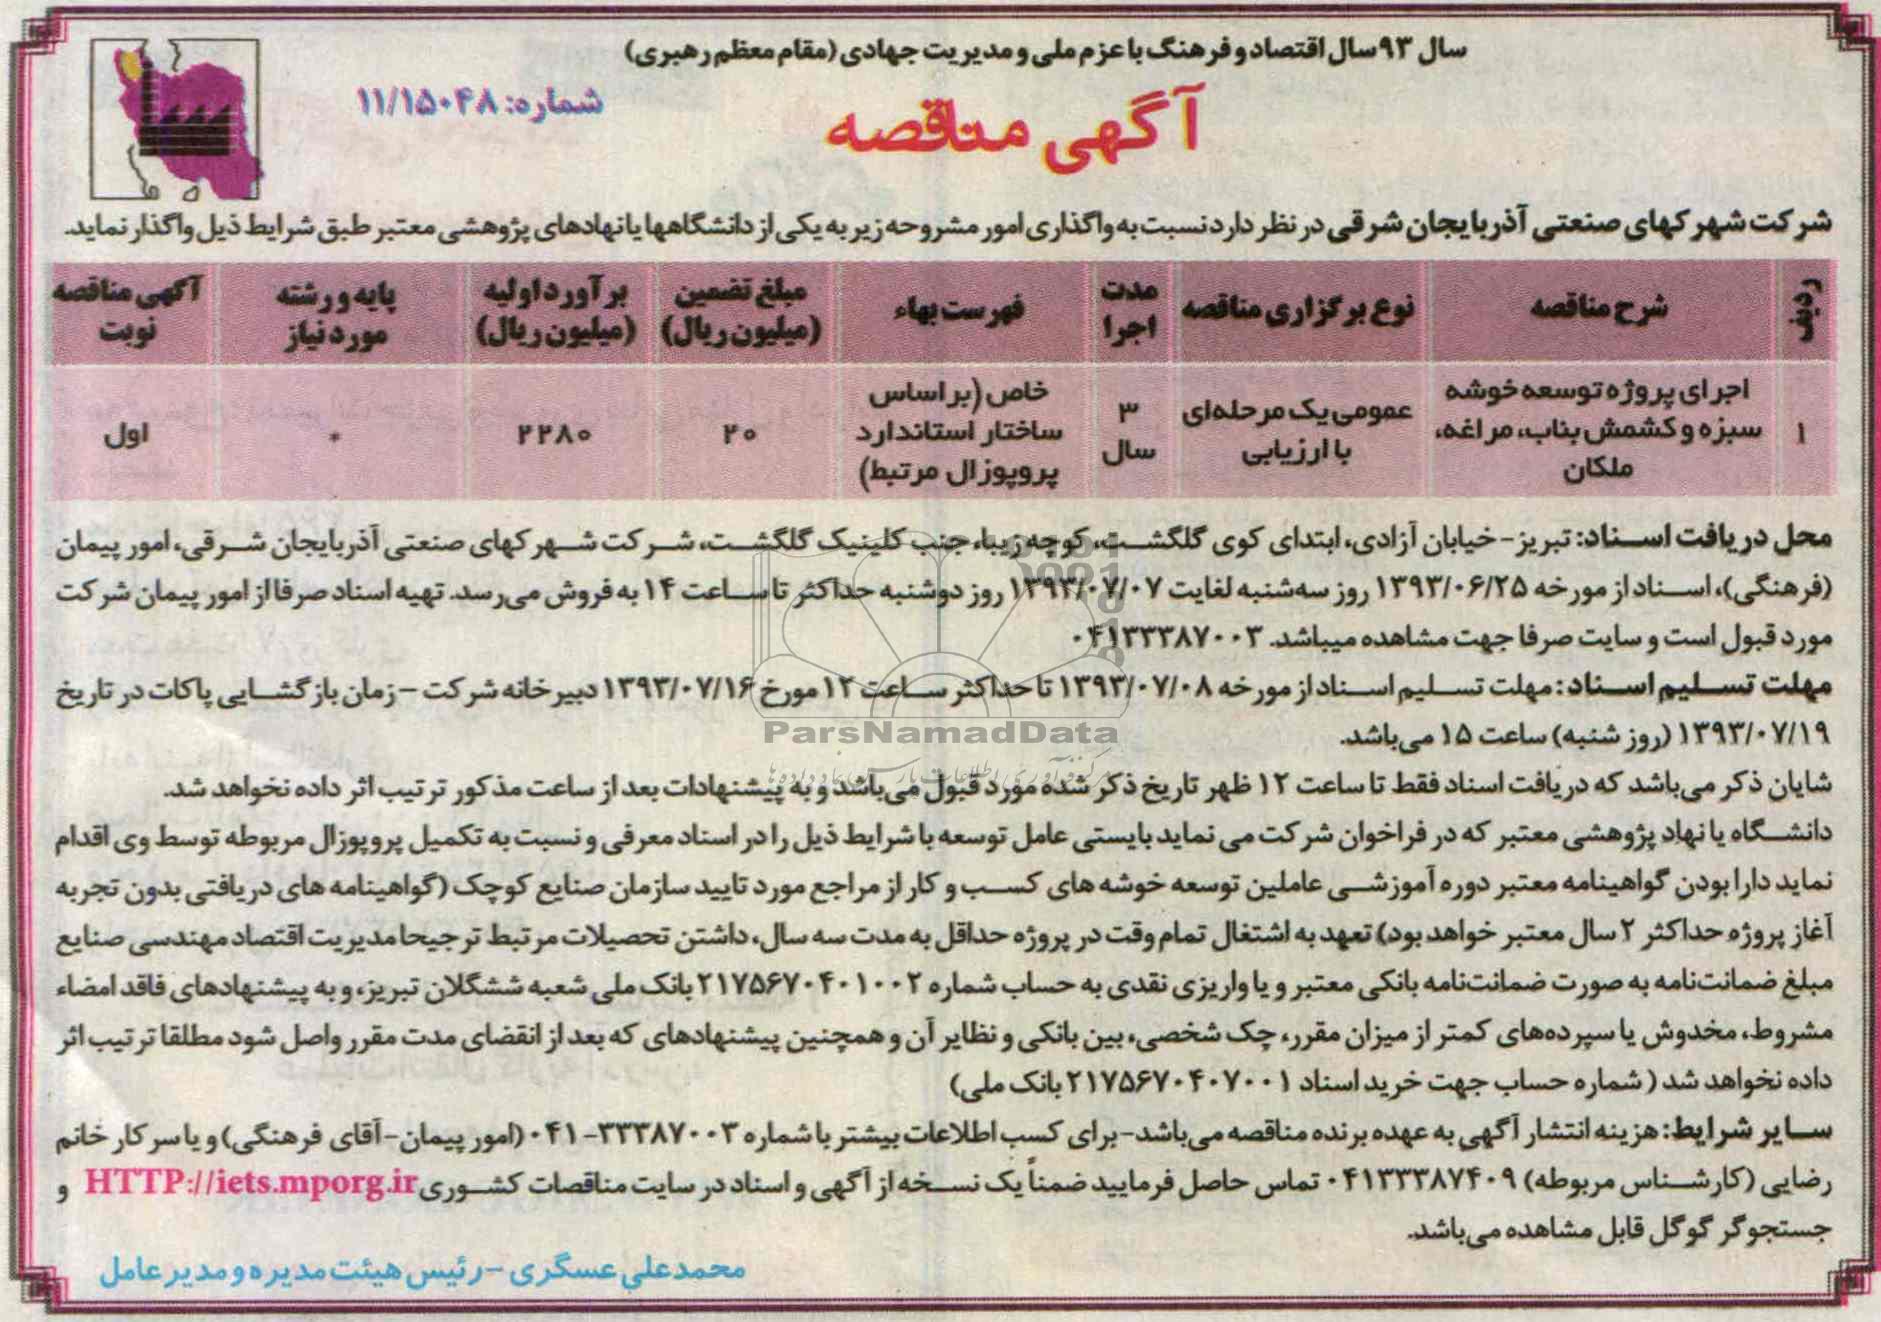 سال ۹۳ سال اقتصاد و فرهنگ با عزم ملی و مدیریت جهادی (مقام معظم رهبری)
شماره: ۱۱/۱۵۰۴۸
آگهی مناقصه
شرکت شهرکهای صنعتی آذربایجان شرقی در نظر دارد نسبت به واگذاری امور مشروحه زیر به یکی از دانشگاهها یا نهادهای پژوهشی معتبر طبق شرایط ذیل واگذار نماید.
ردیف | شرح مناقصه | نوع برگزاری مناقصه | مدت اجرا | فهرست بهاء | مبلغ تضمین (میلیون ریال) | برآورد اولیه (میلیون ریال) | پایه و رشته مورد نیاز | آگهی مناقصه نوبت
۱ | اجرای پروژه توسعه خوشه سبزه و کشمش بناب، مراغه، ملکان | عمومی یک مرحله‌ای با ارزیابی | ۳ سال | خاص (بر اساس ساختار استاندارد پروپوزال مرتبط) | ۲۰ | ۲۲۸۰ | * | اول
محل دریافت اسناد: تبریز - خیابان آزادی، ابتدای کوی گلگشت، کوچه زیبا، جنب کلینیک گلگشت، شرکت شهرکهای صنعتی آذربایجان شرقی، امور پیمان
(فرهنگی)، اسناد از مورخه ۱۳۹۳/۰۶/۲۵ روز سه‌شنبه لغایت ۱۳۹۳/۰۷/۰۷ روز دوشنبه حداکثر تا ساعت ۱۴ به فروش می‌رسد. تهیه اسناد صرفا از امور پیمان شرکت
مورد قبول است و سایت صرفا جهت مشاهده میباشد. ۰۴۱۳۳۳۸۷۰۰۳
مهلت تسلیم اسناد: مهلت تسلیم اسناد از مورخه ۱۳۹۳/۰۷/۰۸ تا حداکثر ساعت ۱۲ مورخ ۱۳۹۳/۰۷/۱۶ دبیرخانه شرکت – زمان بازگشایی پاکات در تاریخ
۱۳۹۳/۰۷/۱۹ (روز شنبه) ساعت ۱۵ می‌باشد.
ParsNamadData
شایان ذکر می‌باشد که دریافت اسناد فقط تا ساعت ۱۲ ظهر تاریخ ذکر شده مورد قبول می‌باشد و به پیشنهادات بعد از ساعت مذکور ترتیب اثر داده نخواهد شد.
دانشگاه یا نهاد پژوهشی معتبر که در فراخوان شرکت می نماید بایستی عامل توسعه با شرایط ذیل را در اسناد معرفی و نسبت به تکمیل پروپوزال مربوطه توسط وی اقدام
نماید دارا بودن گواهینامه معتبر دوره آموزشی عاملین توسعه خوشه های کسب و کار از مراجع مورد تایید سازمان صنایع کوچک (گواهینامه های دریافتی بدون تجربه
آغاز پروژه حداکثر ۲ سال معتبر خواهد بود) تعهد به اشتغال تمام وقت در پروژه حداقل به مدت سه سال، داشتن تحصیلات مرتبط ترجیحا مدیریت اقتصاد مهندسی صنایع
مبلغ ضمانت‌نامه به صورت ضمانت‌نامه بانکی معتبر و یا واریزی نقدی به حساب شماره ۲۱۷۵۶۷۰۴۰۱۰۰۲ بانک ملی شعبه ششگلان تبریز، و به پیشنهادهای فاقد امضاء
مشروط، مخدوش یا سپرده‌های کمتر از میزان مقرر، چک شخصی، بین بانکی و نظایر آن و همچنین پیشنهادهای که بعد از انقضای مدت مقرر واصل شود مطلقا ترتیب اثر
داده نخواهد شد (شماره حساب جهت خرید اسناد ۲۱۷۵۶۷۰۴۰۷۰۰۱ بانک ملی)
سایر شرایط: هزینه انتشار آگهی به عهده برنده مناقصه می‌باشد - برای کسب اطلاعات بیشتر با شماره ۳۳۳۸۷۰۰۳-۰۴۱ (امور پیمان - آقای فرهنگی) و یا سرکار خانم
رضایی (کارشناس مربوطه) ۰۴۱۳۳۳۸۷۴۰۹ تماس حاصل فرمایید ضمناً یک نسخه از آگهی و اسناد در سایت مناقصات کشوری HTTP://iets.mporg.ir و
جستجوگر گوگل قابل مشاهده می‌باشد.
محمدعلی عسگری - رئیس هیئت مدیره و مدیر عامل